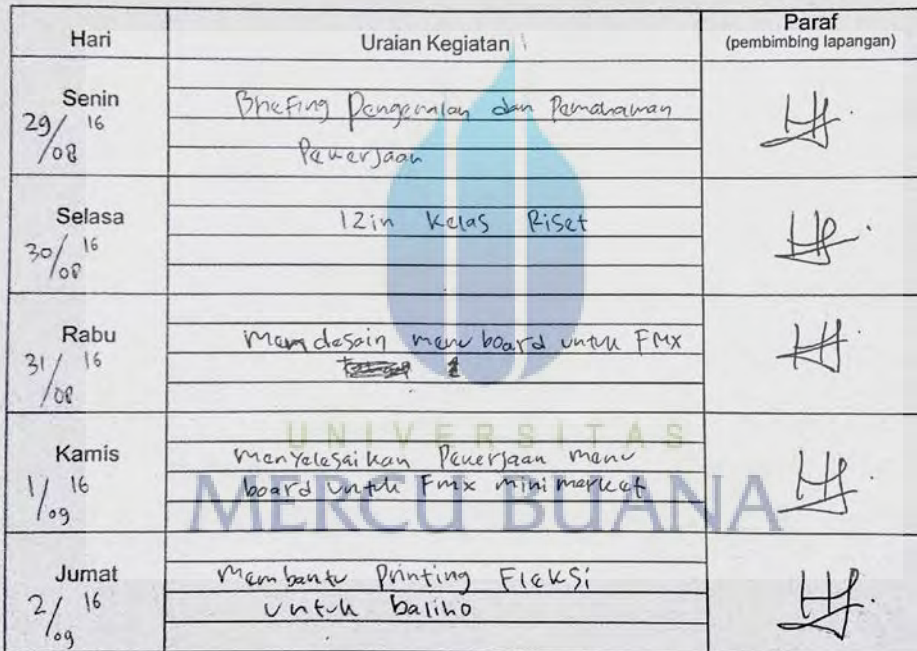 Hari Uraian Kegiatan Paraf
(pembimbing lapangan)
Senin
29/08 16
Briefing Pengenalan dan Pemahaman
Pekerjaan
Selasa
30/08 16
Izin Kelas Riset
Rabu
31/08 16
Mendesain menu board untuk FMX
UNIVERSITAS
MERCU BUANA
Kamis
1/09 16
Menyelesaikan Pekerjaan menu
board untuk Fmx minimarket
Jumat
2/09 16
Membantu Printing Fleksi
untuk baliho